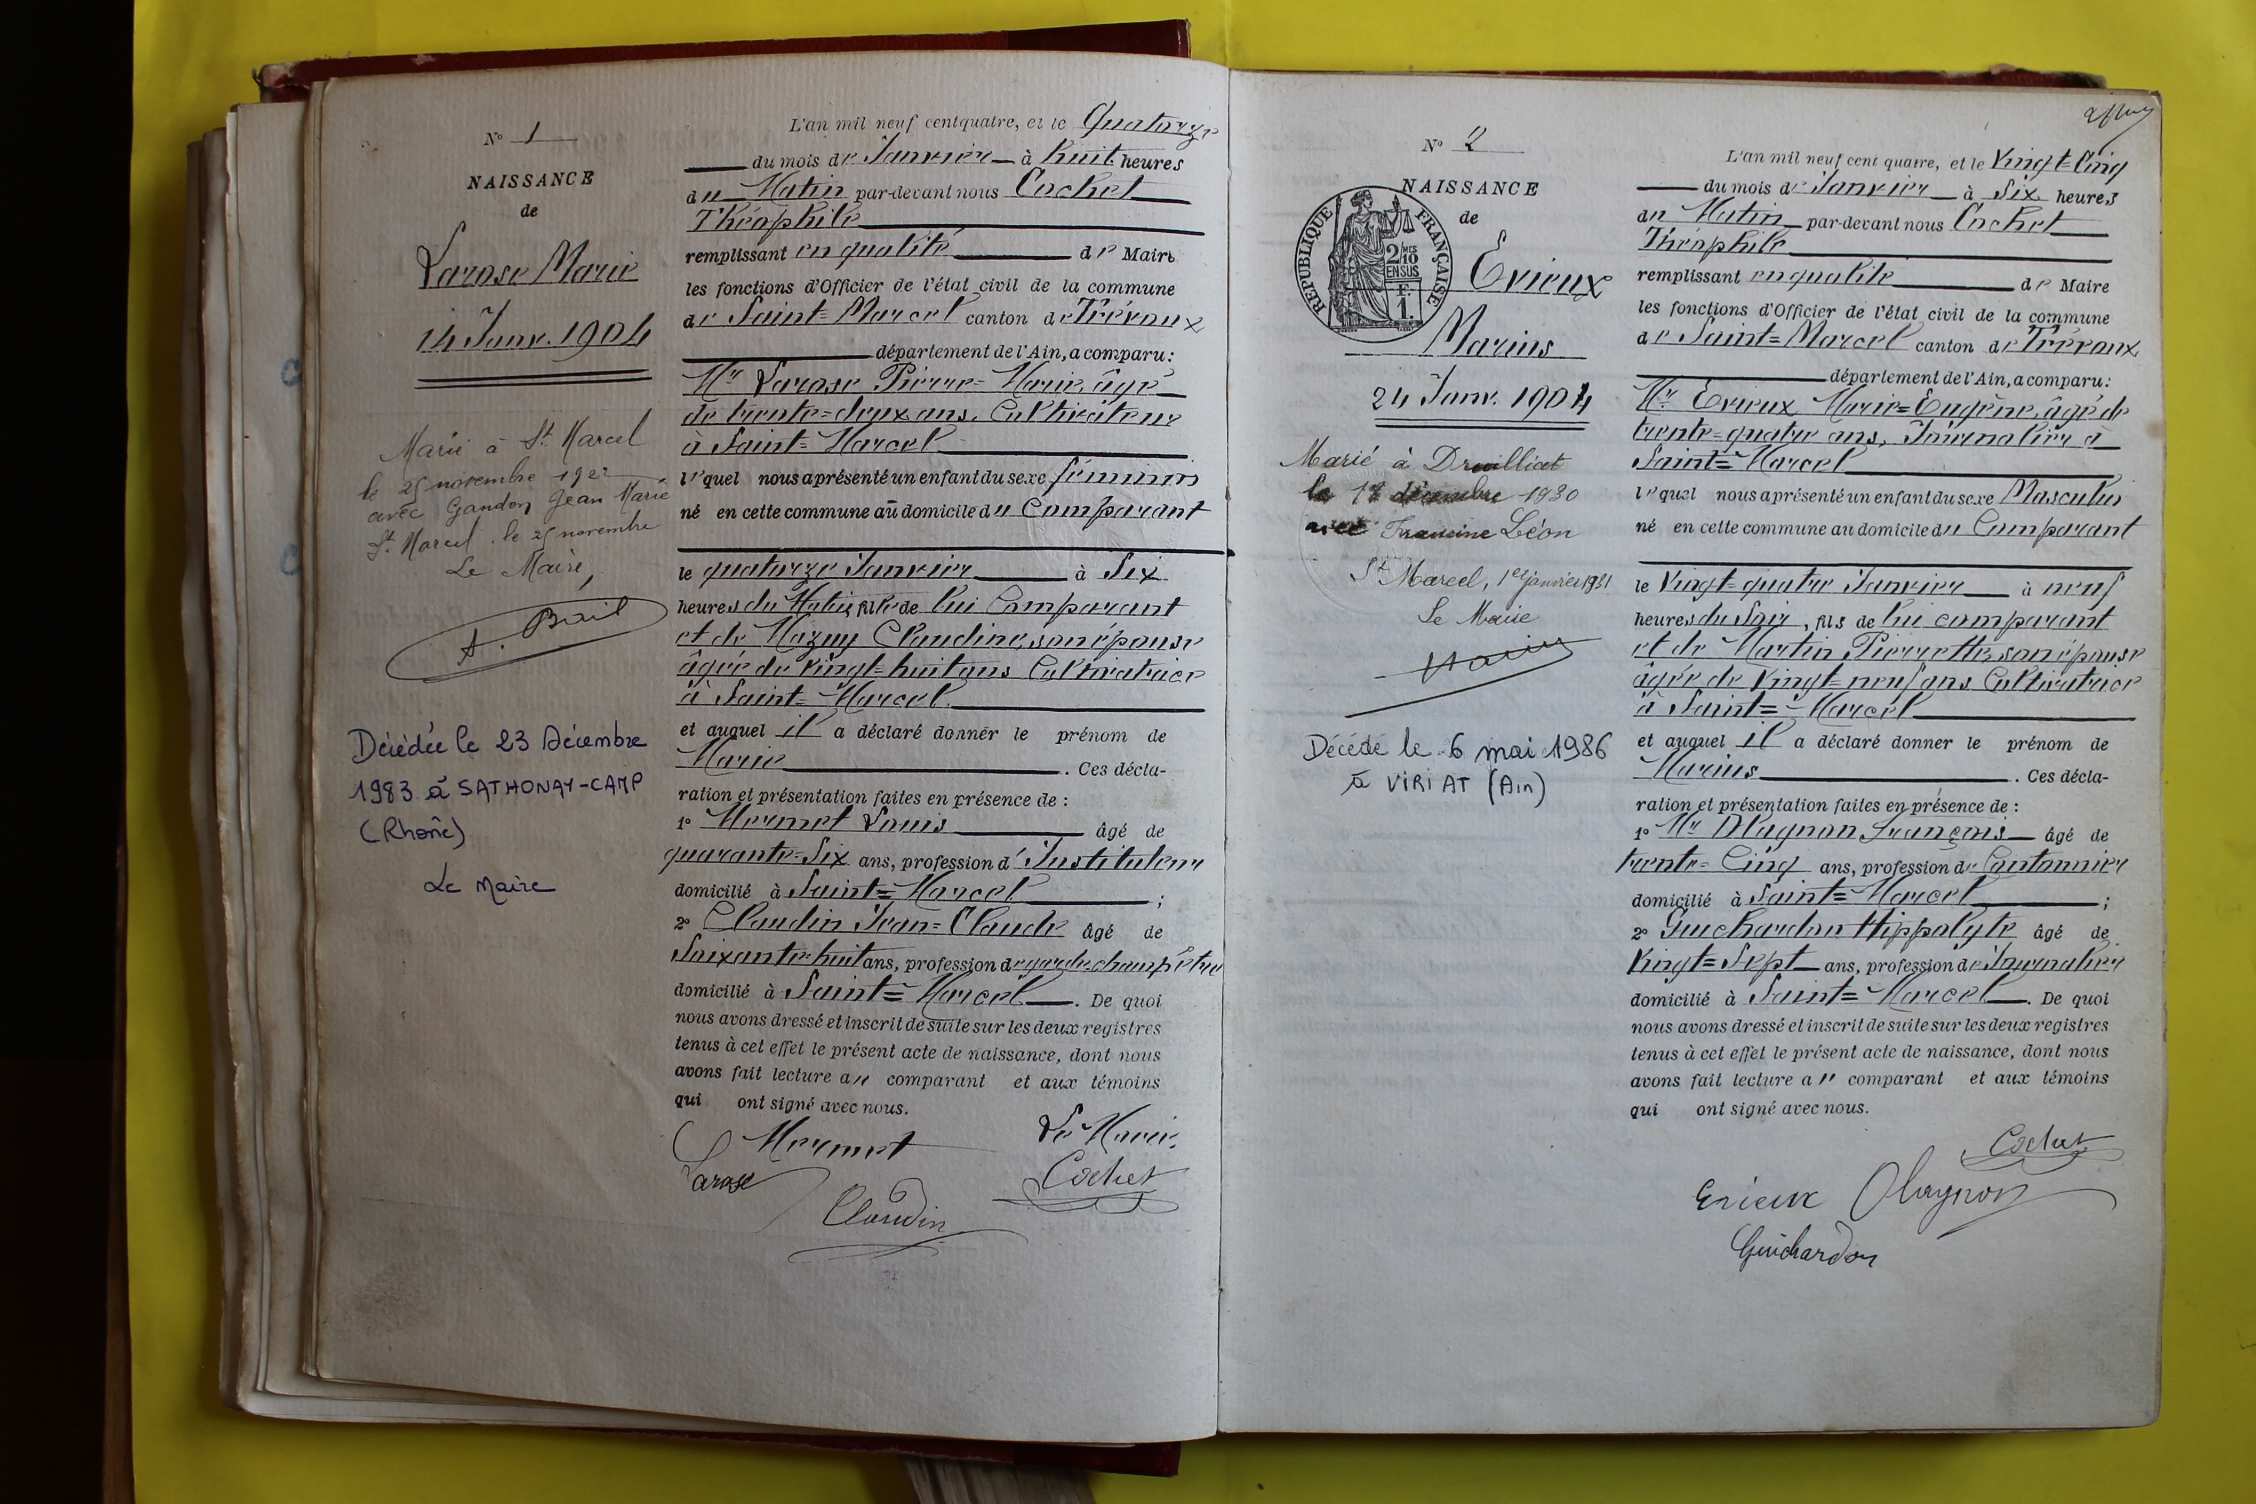 N° 1
NAISSANCE
de
Larose Marie
14 Janv. 1904
Marié à St Marcel
le 25 novembre 1922
avec Gandon Jean Marie
St Marcel le 25 novembre
Le Maire,
Décédée le 23 Décembre
1983 à SATHONAY-CAMP
(Rhône)
Le Maire
L'an mil neuf cent quatre, et le Quatorze
du mois de Janvier à huit heures
du Matin par-devant nous Cochet
Théophile
remplissant en qualité de Maire
les fonctions d'Officier de l'état civil de la commune
de Saint=Marcel canton de Trévoux
département de l'Ain, a comparu:
Mr Larose Pierre=Marie, âgé
de trente=deux ans, Cultivateur
à Saint=Marcel
lequel nous a présenté un enfant du sexe féminin
né en cette commune au domicile du Comparant
le quatorze Janvier à Six
heures du Matin, fille de lui Comparant
et de Mazuy Claudine, son épouse
âgée de vingt-huit ans Cultivatrice
à Saint=Marcel.
et auquel il a déclaré donner le prénom de
Marie. Ces décla-
ration et présentation faites en présence de :
1° Mermet Louis âgé de
quarante=Six ans, profession d'Instituteur
domicilié à Saint=Marcel ;
2° Claudin Jean=Claude âgé de
Soixante-huit ans, profession de garde-champêtre
domicilié à Saint=Marcel. De quoi
nous avons dressé et inscrit de suite sur les deux registres
tenus à cet effet le présent acte de naissance, dont nous
avons fait lecture au comparant et aux témoins
qui ont signé avec nous.
Mermet Le Maire,
Larose Cochet
Claudin
N° 2
NAISSANCE
de
RÉPUBLIQUE FRANÇAISE
2/10
EN SUS
F.
1.
Evieux
Marius
24 Janv. 1904
Marié à Druillat
décembre 1930
avec Francine Léon
St Marcel, 1er janvier 1931
Le Maire
Décédé le 6 mai 1986
à VIRIAT (Ain)
L'an mil neuf cent quatre, et le Vingt=Cinq
du mois de Janvier à Six heures
du Matin par-devant nous Cochet
Théophile
remplissant en qualité de Maire
les fonctions d'Officier de l'état civil de la commune
de Saint=Marcel canton de Trévoux
département de l'Ain, a comparu:
Mr Evieux Marie=Eugène, âgé de
trente=quatre ans, Journalier à
Saint=Marcel
lequel nous a présenté un enfant du sexe Masculin
né en cette commune au domicile du Comparant
le Vingt=quatre Janvier à neuf
heures du Soir, fils de lui comparant
et de Martin Pierrette, son épouse
âgée de Vingt=neuf ans Cultivatrice
à Saint=Marcel
et auquel il a déclaré donner le prénom de
Marius. Ces décla-
ration et présentation faites en présence de :
1° Mr Olagnon François âgé de
trente=Cinq ans, profession de Cantonnier
domicilié à Saint=Marcel ;
2° Guichardon Hippolyte âgé de
Vingt=Sept ans, profession de Journalier
domicilié à Saint=Marcel. De quoi
nous avons dressé et inscrit de suite sur les deux registres
tenus à cet effet le présent acte de naissance, dont nous
avons fait lecture au comparant et aux témoins
qui ont signé avec nous.
Cochet
Evieux Olagnon
Guichardon